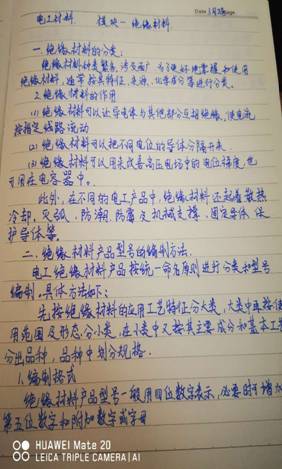 电工材料 模块一 绝缘材料
Date page
一.绝缘材料的分类
绝缘材料种类繁多,涉及面广,为了便于掌握和使用
绝缘材料,通常按其特征、来源、化学成分等进行分类。
2.绝缘材料的作用
(1)绝缘材料可以让导电体与其他部分互相绝缘,使电流
按指定线路流动
(2)绝缘材料可以把不同电位的导体分隔开来.
(3)绝缘材料可以用来改善高压电场中的电位梯度,也
可用在电容器中。
此外,在不同的电工产品中,绝缘材料还起着散热
冷却、灭弧、防潮、防霉及机械支撑、固定导体、保
护导体等。
二.绝缘材料产品型号的编制方法.
电工绝缘材料产品按统一命名原则进行分类和型号
编制,具体方法如下:
先按绝缘材料的应用工艺特征分大类,大类中再按使
用范围及形态分小类,在小类中又按其主要成分和基本工
分出品种,品种中划分规格.
1.编制格式
绝缘材料产品型号一般用四位数字表示,必要时可增加
第五位数字和附加数字或字母
HUAWEI Mate 20
LEICA TRIPLE CAMERA | AI